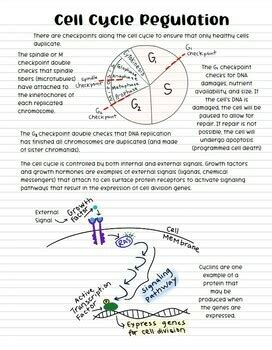 Cell Cycle Regulation
There are checkpoints along the cell cycle to ensure that only healthy cells
duplicate.
The spindle or M
checkpoint double
checks that spindle
fibers (microtubules)
have attached to
the kinetochores of
each replicated
chromosome.
Spindle
checkpoint
G₂
checkpoint
Telophase
Anaphase
Metaphase
Prophase
G₁
S
G₂
G₁
checkpoint
The G₁ checkpoint
checks for DNA
damages, nutrient
availability and size. If
the cell's DNA is
damaged, the cell will
be paused to allow
for repair. If repair is
not possible, the cell
will undergo
apoptosis
(programmed cell death)
The G₂ checkpoint double checks that DNA replication
has finished all chromosomes are duplicated (and made
of sister chromatids).
The cell cycle is controlled by both internal and external signals. Growth factors
and growth hormones are examples of external signals (ligands, chemical
messengers) that attach to cell surface protein receptors to activate signaling
pathways that result in the expression of cell division genes.
External
Signal
Growth
Factor
RAS
Cell
Membrane
signaling
pathway
Active
Transcription
Factor
Express genes
for cell division
Cyclins are one
example of a
protein that
may be
produced when
the genes are
expressed.